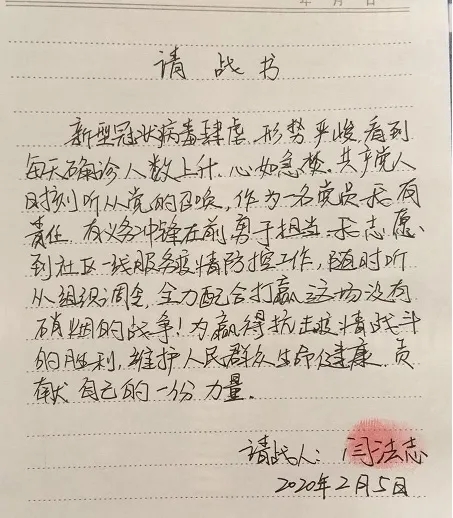 年 月 日
请战书
新型冠状病毒肆虐,形势严峻,看到
每天确诊人数上升、心如急焚。共产党人
时刻听从党的召唤,作为一名党员我有
责任、有义务冲锋在前勇于担当。我志愿
到社区一线服务疫情防控工作,随时听
从组织调令,全力配合打赢这场没有
硝烟的战争!为赢得抗击疫情战斗
的胜利,维护人民群众生命健康,贡
献自己的一份力量。
请战人:闫法志
2020年2月5日